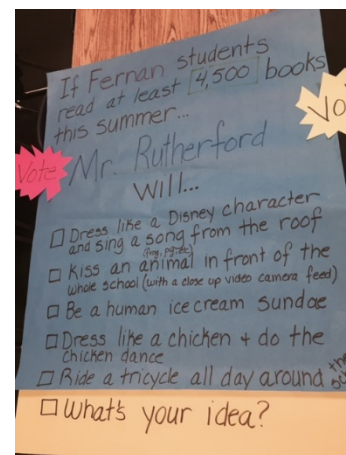 If Fernan students
read at least 4,500 books
this summer...
Vote
Vo
Mr. Rutherford
Will...
□ Dress like a Disney character
and sing a song from the roof
□ Kiss an animal in front of the
(frog, pig, etc)
whole school (with a close up video camera feed)
□ Be a human ice cream sundae
□ Dress like a chicken + do the
chicken dance
□ Ride a tricycle all day around the
□ What's your idea?